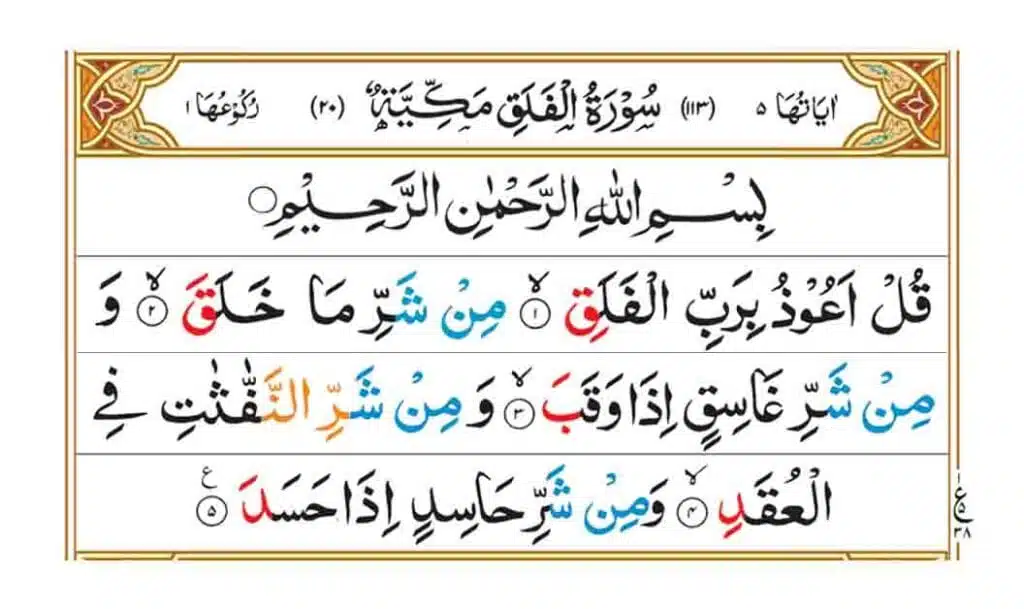 اٰيَاتُهَا ٥ (١١٣) سُوْرَةُ الْفَلَقِ مَكِّيَّةٌ (٢٠) رُكُوْعُهَا ١
بِسْمِ اللّٰهِ الرَّحْمٰنِ الرَّحِيْمِ
قُلْ اَعُوْذُ بِرَبِّ الْفَلَقِ ۙ﴿١﴾ مِنْ شَرِّ مَا خَلَقَ ۙ﴿٢﴾ وَ
مِنْ شَرِّ غَاسِقٍ اِذَا وَقَبَ ۙ﴿٣﴾ وَ مِنْ شَرِّ النَّفّٰثٰتِ فِي
الْعُقَدِ ۙ﴿٤﴾ وَمِنْ شَرِّ حَاسِدٍ اِذَا حَسَدَ ﴿٥﴾ ع
ع
٥
٣٨